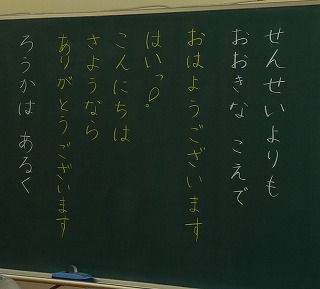 せんせいよりも
おおきな こえで
おはようございます
はいっ!
こんにちは
さようなら
ありがとうございます
ろうかは あるく